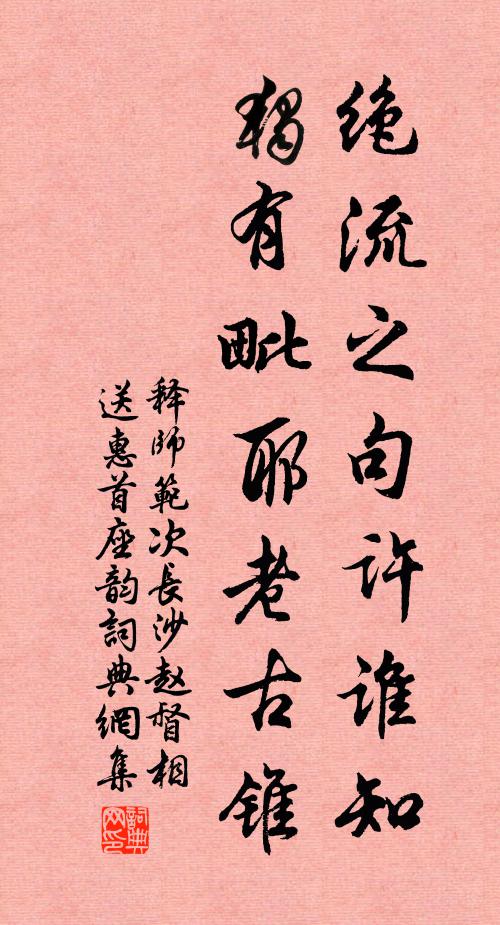 绝流之句许谁知
独有毗耶老古锥
释师範次長沙赵督相
送惠首座韵詞典網集
詞典网印